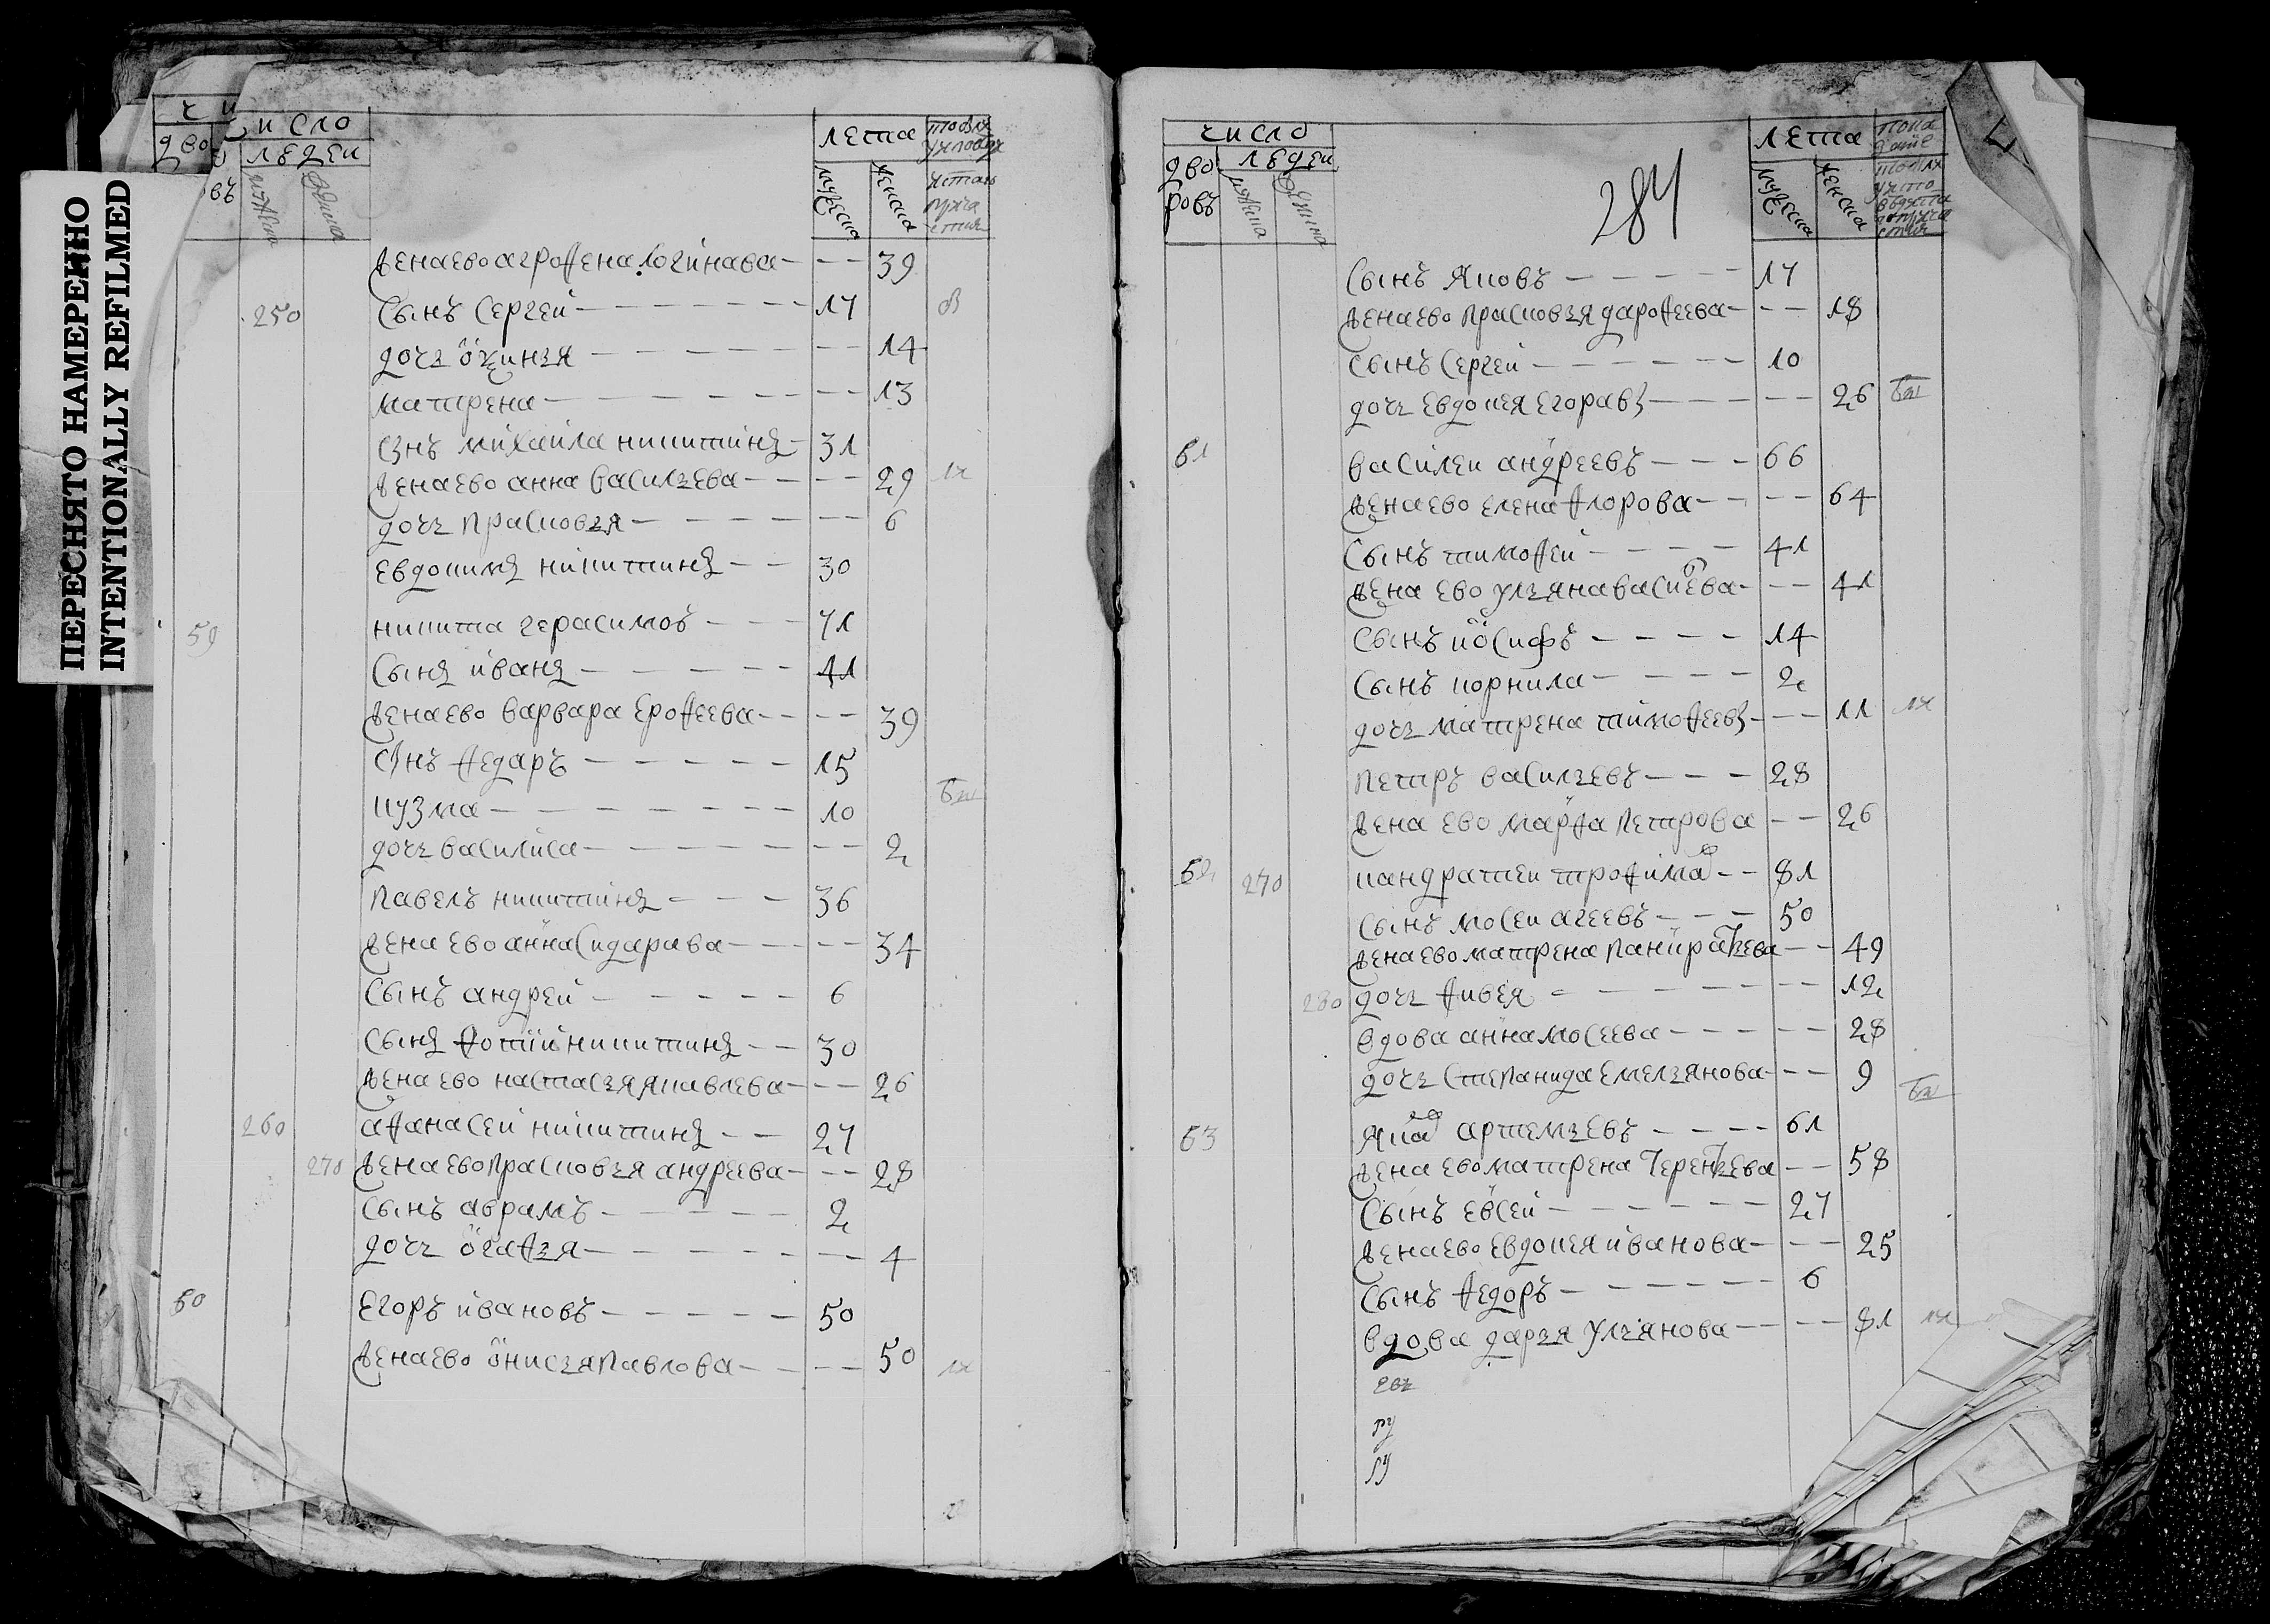 ПЕРЕСНЯТО НАМЕРЕННО
INTENTIONALLY REFILMED
число
дво
людеи
лета
мужеска
женска
женаево агрофена логинава 39
250 Сынъ Сергеи 17
дочь 14
матрена 13
Снъ михаила никитинъ 31
женаево анна васильева 29
дочь прасковья 6
Евдокимъ никитинъ 30
59 никита герасимов 71
Сынъ иванъ 41
женаево варвара Ерофеева 39
Снъ федаръ 15
кузма 10
дочь василиса 2
павелъ никитинъ 36
жена ево анна Сидарава 34
Сынъ андреи 6
Сынъ фотии никитинъ 30
жена ево настасья яковлева 26
260 афанасеи никитинъ 27
270 женаево прасковья андреева 28
Сынъ аврамъ 2
дочь огафья 4
60 Егоръ ивановъ 50
женаево онисья павлова 50
число
дво
ровъ
людеи
284
лета
мужеска
женска
Сынъ яковъ 17
женаево прасковья дарофеева 18
Сынъ Сергеи 10
дочь Евдокея Егоравъ 26
61 василеи андреевъ 66
женаево елена флорова 64
Сынъ тимофеи 41
жена ево ульяна василева 41
Сынъ иосифъ 14
Сынъ корнила 2
дочь матрена тимофеевъ 11
петръ васильевъ 28
жена ево марфа петрова 26
62 270 кандратеи трофимов 81
Сынъ мосеи агеевъ 50
женаево матрена панкратьева 49
280 дочь фивея 12
вдова анна мосеева 28
дочь Степанида Емельянова 9
63 яков артемьевъ 61
жена ево матрена терентьева 58
Сынъ евсеи 27
женаево Евдокея иванова 25
Сынъ федоръ 6
вдова дарья ульянова 81